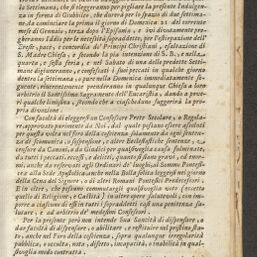 la Settimana, che si eleggeranno per pigliare la presente Indulgenza
in forma di Giubbileo, che durerà per lo spazio di due settimane
da cominciare la prima il giorno di Domenica 21. del corrente
mese di Gennaro, terza dopo l'Epifania, e ivi divotamente pregheranno
Iddio per le necessità sopraddette, per l'estirpazione dell'
Eresie, pace, e concordia de' Principi Christiani, esaltazione di
S. Madre Chiesa, e secondo la pia intenzione di S. B., nella
quarta, e sesta feria, e nel Sabato di una delle predette Settimane
digiuneranno, e confessati i suoi peccati in qualche giorno
dentro la Settimana, o pure nella Domenica immediatamente seguente,
riverentemente prenderanno in qualunque Chiesa a loro
arbitrio il Santissimo Sagramento dell'Eucaristia, e dando a poveri
qualche limosina, secondo che a ciascheduno suggerirà la propria
divozione.
Con facoltà di eleggersi un Confessore Prete Secolare, o Regolare
approvato parimente da Noi, dal quale possano essere assoluti
per questa volta nel foro della coscienza solamente da ogni sentenza
di scomunica, sospensione, e altre Ecclesiastiche sentenze, e
censure da Canoni, o da Giudici per qualsivoglia causa fulminate,
da tutti i peccati, eccessi, e delitti, quanto si siano gravi, ed enormi,
anche da riservati agli Ordinari de' luoghi, al Sommo Pontefice,
e alla Sede Apostolica, anche nella Bolla solita leggersi nel giorno
della Cena del Signore, o di altri Romani Pontefici Predecessori.
E in oltre, che possano commutargli qualsivoglia voto (eccetto
quello di Religione, e Castità) in altre opere salutevoli, con imporre
a ciascuno di essi in tutti i sopraddetti casi una penitenza salutare,
e ad arbitrio de' medesimi Confessori.
Per la presente però non intende Sua Santità di dispensare, o
dar facoltà di dispensare, o abilitare, e restituire nel pristino stato,
anche nel Foro della coscienza, sopra qualunque irregolarità
pubblica, o occulta, nota, difetto, incapacità, o inabilità in qualsivoglia
modo contratta